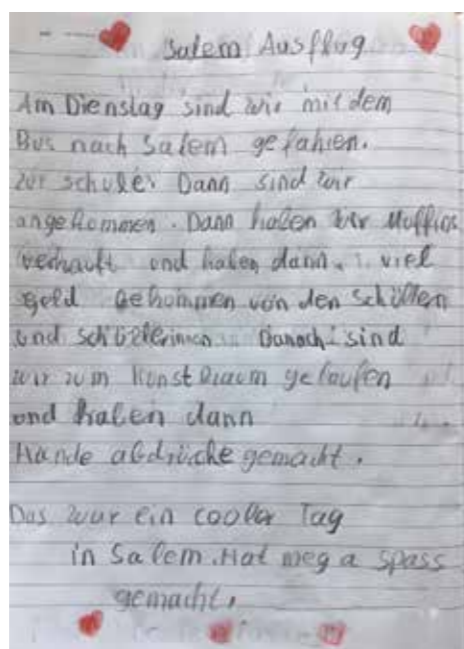 Salem Ausflug
Am Dienstag sind wir mit dem
Bus nach Salem gefahren.
zur schule. Dann sind wir
angekommen. Dann haben wir Muffins
verkauft und haben dann viel
geld bekommen von den Schülern
und schülerinnen. Danach sind
wir zum Kunst Raum gelaufen
und haben dann
Hände abdrücke gemacht.
Das war ein cooler Tag
in Salem. Hat mega spass
gemacht.